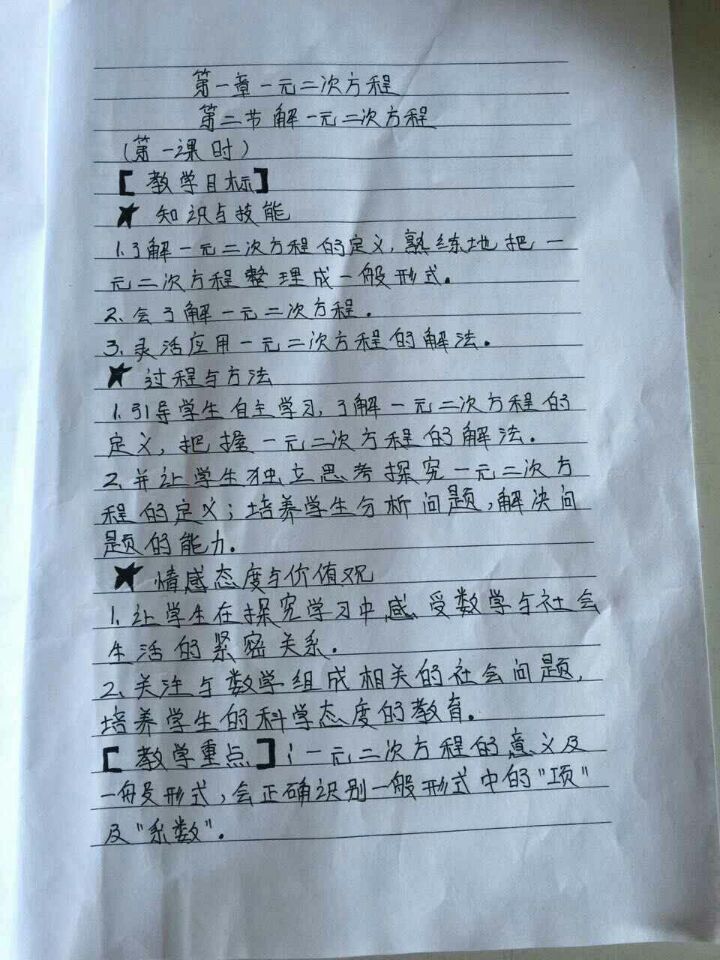 第一章一元二次方程
第二节解一元二次方程
(第一课时)
【教学目标】
★ 知识与技能
1.了解一元二次方程的定义,熟练地把一
元二次方程整理成一般形式。
2.会了解一元二次方程。
3.灵活应用一元二次方程的解法。
★ 过程与方法
1.引导学生自主学习,了解一元二次方程的
定义,把握一元二次方程的解法。
2.并让学生独立思考探究一元二次方
程的定义;培养学生分析问题,解决问
题的能力。
★ 情感态度与价值观
1.让学生在探究学习中感受数学与社会
生活的紧密关系。
2.关注与数学组成相关的社会问题,
培养学生的科学态度的教育。
【教学重点】:一元二次方程的意义及
一般形式,会正确识别一般形式中的"项"
及"系数"。